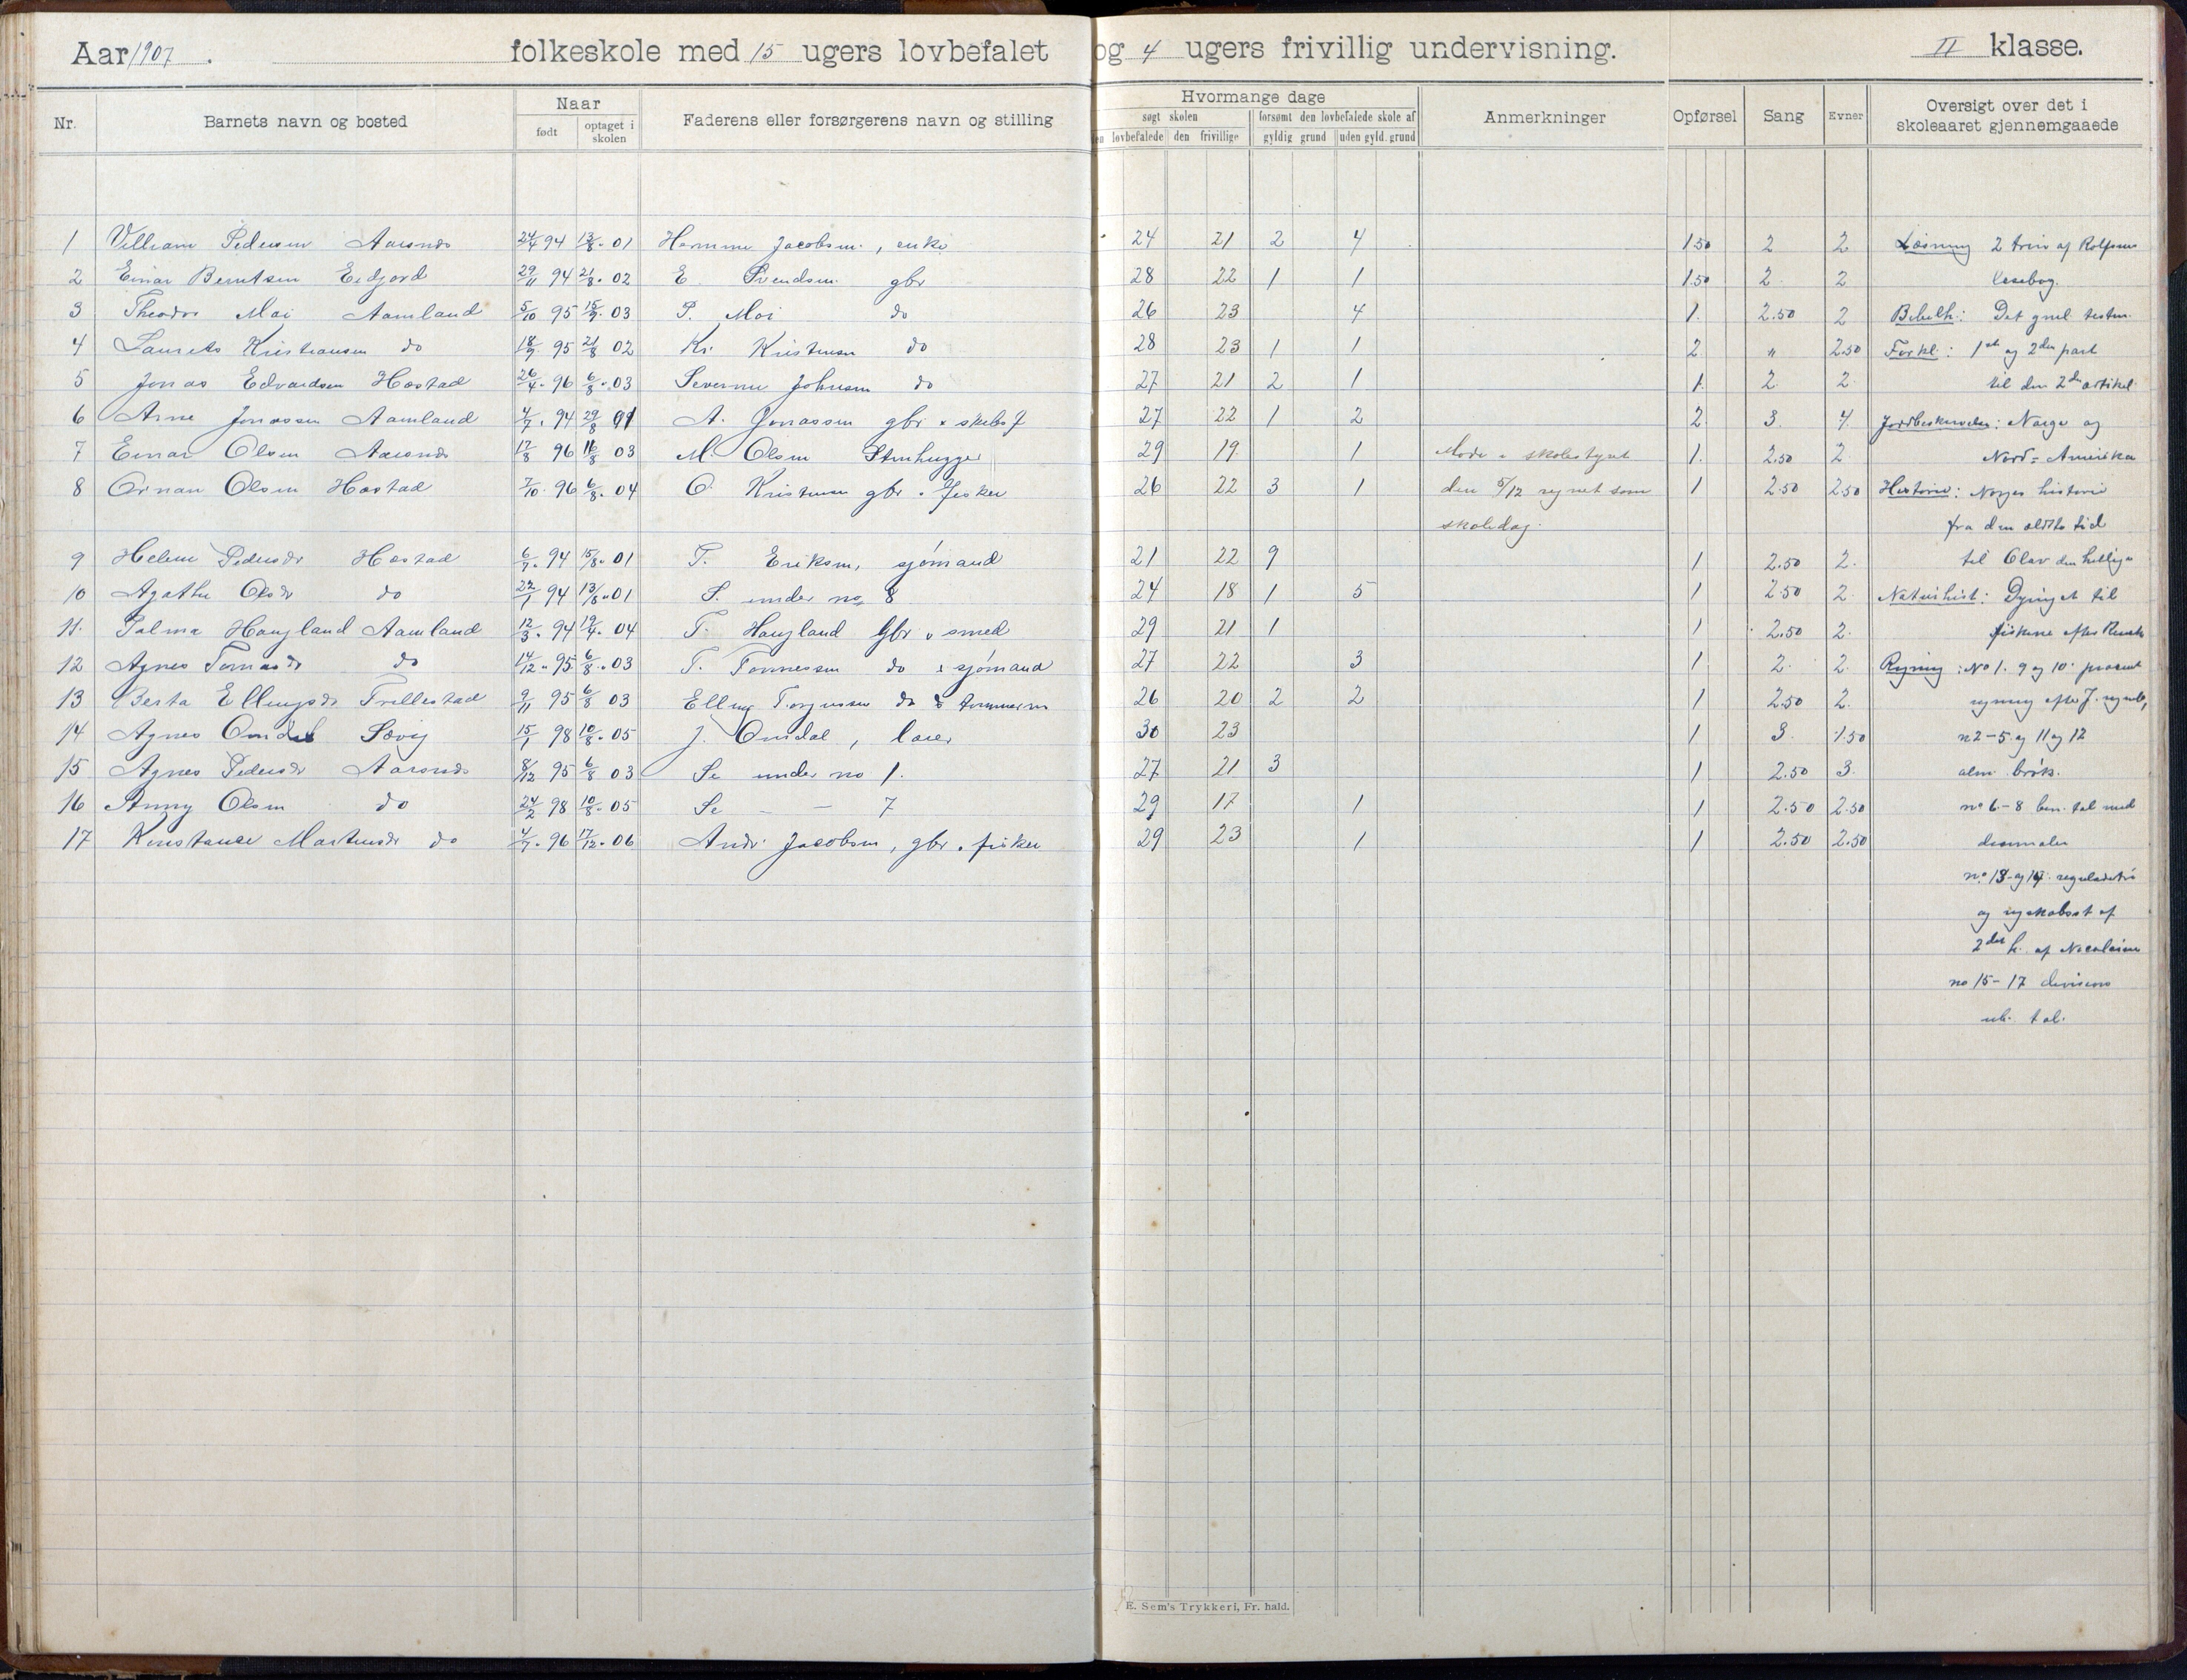 Aar 1907. folkeskole med 15 ugers lovbefalet og 4 ugers frivillig undervisning. II klasse.
Nr. Barnets navn og bosted Naar født optaget i skolen Faderens eller forsørgerens navn og stilling Hvormange dage søgt skolen den lovbefalede den frivillige forsømt den lovbefalede skole af gyldig grund uden gyld. grund Anmerkninger Opførsel Sang Evner Oversigt over det i skoleaaret gjennemgaaede
1 Villiam Pedersen Aarsnes 24/4 94 13/8 01 Jacobsen, enke 24 21 2 4 1.50 2 2 Læsning 2 trin af Rolfsens
2 Einar Berntsen Eidjord 29/11 94 21/8 02 E. Svendsen gbr 28 22 1 1 1.50 2 2 læsebog.
3 Theodor Moi Aamland 5/10 95 15/9 03 P. Moi do 26 23 4 1. 2.50 2 Bibelh: Det gml. testm.
4 Laurits Kristiansen do 18/9 95 21/8 02 Kr. Kristensen do 28 23 1 1 2 " 2.50 Forkl: 1st og 2den part
5 Jonas Edvardsen Hæstad 26/4 96 6/8 03 Severine Johnsen do 27 21 2 1 1. 2 2 til den 2den artikel
6 Arne Jonassen Aamland 4/7 94 29/8 01 A. Jonassen gbr 27 22 1 2 2 3. 4. Jordbeskrivelse: Norge og
7 Einar Olsen Aarsnes 12/8 96 16/8 03 M. Olsen Stenhugger 29 19 1 Møde i skolestyret 1. 2.50 2 Nord-Amerika
8 Ornan Olsen Hæstad 7/10 96 6/8 04 O. Kristensen gbr. fisker 26 22 3 1 den 5/12 regnet som 1 2.50 2.50 Historie: Norges historie
skoledag. fra den ældste tid
9 Helene Pedersdr Hæstad 6/7 94 15/8 01 T. Eriksen, sjømand 21 22 9 1 2.50 2. til Olav den hellige
10 Agathe Olsdr do 22/1 94 13/8 01 S. under no 8 24 18 1 5 1 2.50 2 Naturhist: Dyriget til
11. Palma Haugland Aamland 12/3 94 19/4 04 T. Haugland Gbr smed 29 21 1 1 2.50 2. fiskene efter
12 Agnes Tomasdr do 14/12 95 6/8 03 T. Tønnessen do sjømand 27 22 3 1 2. 2. Regning: No 1. 9 og 10. procent
13 Berta Ellingsdr Trellestad 9/11 95 6/8 03 Elling Torgersen do 26 20 2 2 1 2.50 2. regning efter J.
14 Agnes Omdal Søvig 15/1 98 10/8 05 J. Omdal, lærer 30 23 1 3. 1.50 n2-5. og 11 og 12
15 Agnes Pedersdr Aarsnes 8/12 95 6/8 03 Se under no 1. 27 21 3 1 2.50 3. alm. brøk.
16 Anny Olsen do 24/2 98 10/8 05 Se — — 7 29 17 1 1 2.50 2.50 no 6-8 ben. tal med
17 Konstance Martinsdr do 4/7 96 17/12 06 Andr. Jacobsen, gbr. fisker 29 23 1 1 2.50 2.50 desimaler
no 13 og 14 reguladetri
og af
2det h. af Nicolaisen
no 15-17 division
tal.
E. Sem's Trykkeri, Fr. hald.